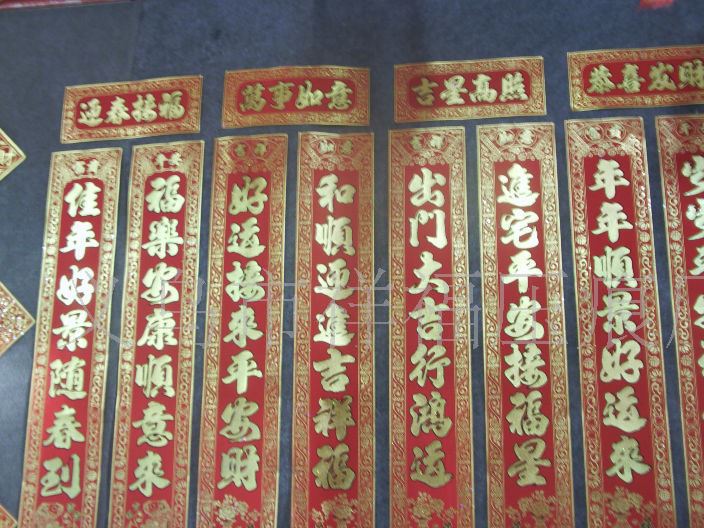 迎春接福
萬事如意
吉星高照
恭喜发财
佳年好景随春到
福樂安康順意來
好运接来平安財
和順迎進吉祥福
出門大吉行鴻运
進宅平安接福星
年年順景好运来